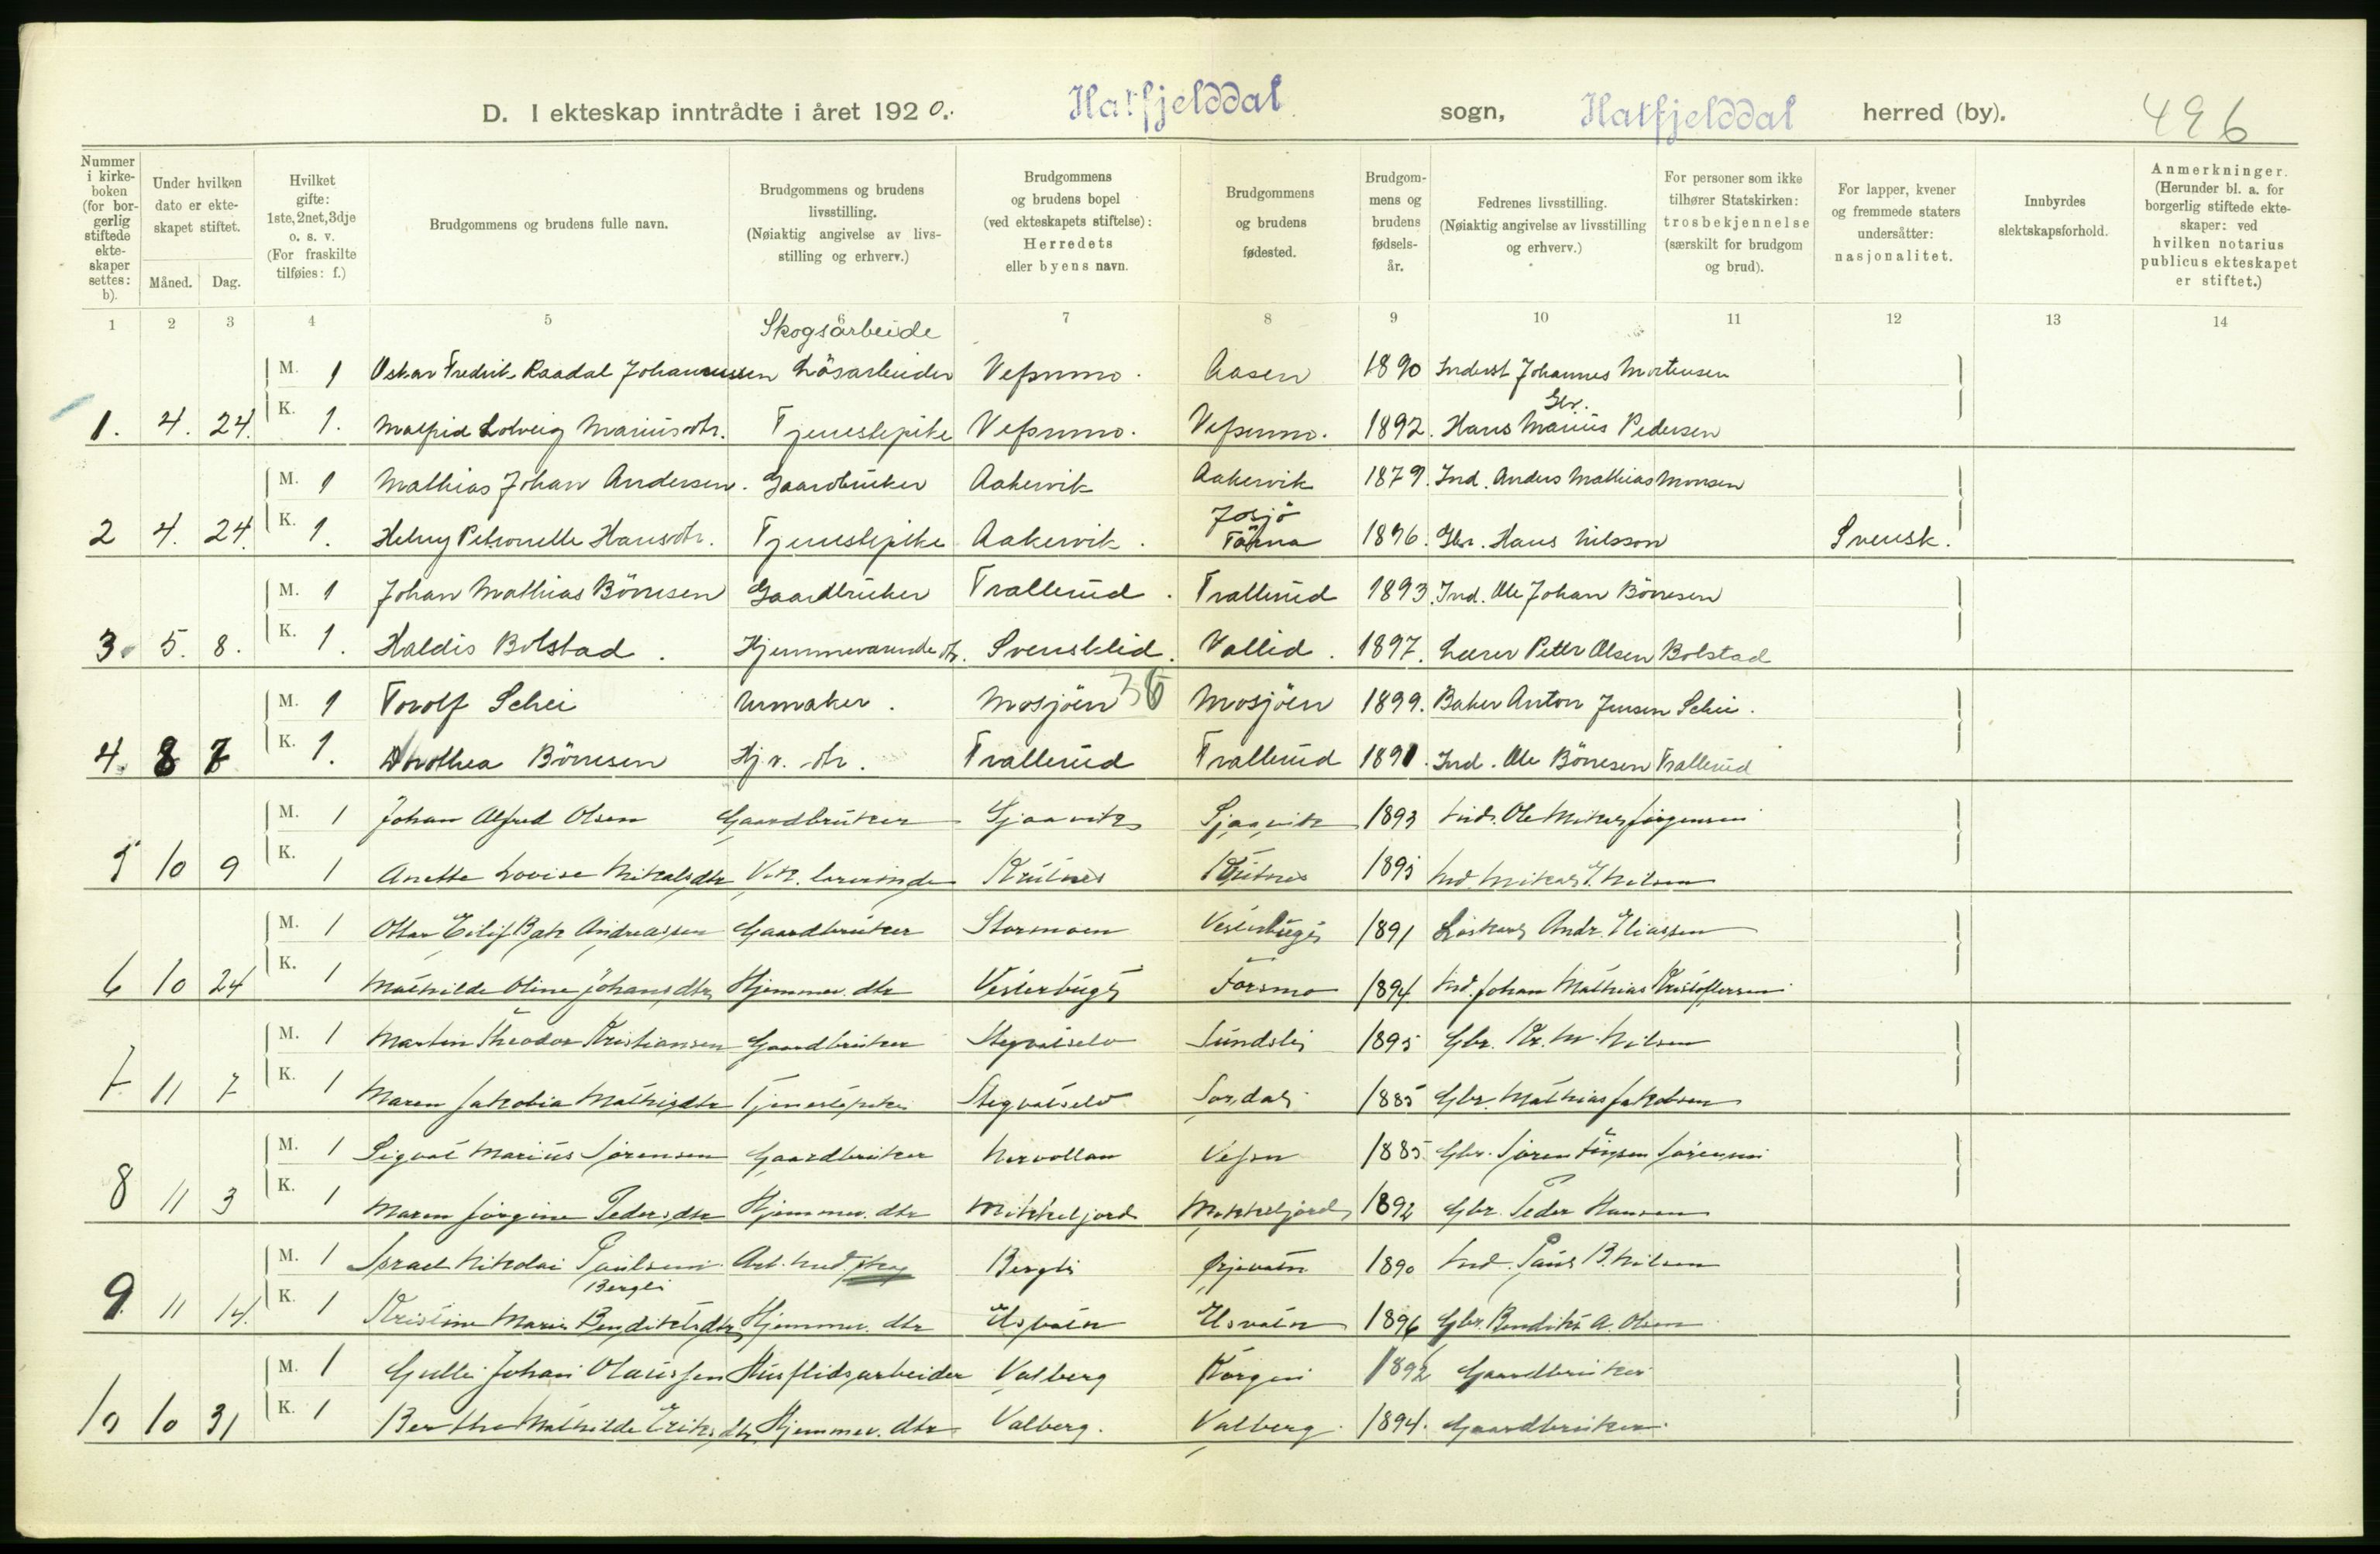 D. I ekteskap inntrådte i året 1920. Hatfjelddal sogn, Hatfjelddal herred (by). 496
Nummer i kirkeboken (for borgerlig stiftede ekteskaper settes: b).
Under hvilken dato er ekteskapet stiftet.
Måned. Dag.
Hvilket gifte: 1ste, 2net, 3dje o. s. v. (For fraskilte tilføies: f.)
Brudgommens og brudens fulle navn.
Brudgommens og brudens livsstilling. (Nøiaktig angivelse av livsstilling og erhverv.)
Brudgommens og brudens bopel (ved ekteskapets stiftelse): Herredets eller byens navn.
Brudgommens og brudens fødested.
Brudgommens og brudens fødselsår.
Fedrenes livsstilling. (Nøiaktig angivelse av livsstilling og erhverv.)
For personer som ikke tilhører Statskirken: trosbekjennelse (særskilt for brudgom og brud).
For lapper, kvener og fremmede staters undersåtter: nasjonalitet.
Innbyrdes slektskapsforhold.
Anmerkninger. (Herunder bl. a. for borgerlig stiftede ekteskaper: ved hvilken notarius publicus ekteskapet er stiftet.)
1 2 3 4 5 6 7 8 9 10 11 12 13 14
Skogsarbeide
M. 1 Oskar Fredrik Raadal Johannessen Løsarbeider Vefsnmo. Aasen 1890 Inderst Johannes Mortensen
Gbr.
1. 4. 24. K. 1. Malfrid Solveig Mariusdtr. Tjenestepike Vefsnmo. Vefsnmo. 1892. Hans Marius Pedersen
M. 1 Mathias Johan Andersen. Gaardbruker Aakervik Aakervik 1879. Ind. Anders Mathias Monsen
Josjö
2 4. 24. K. 1. Helny Petronelle Hansdtr. Tjenestepike Aakervik. Tärna 1896. Gbr. Hans Nilsson Svensk.
M. 1 Johan Mathias Børresen Gaardbruker Trallerud. Trallerud 1893. Ind. Ole Johan Børresen
3. 5. 8. K. 1. Haldis Bolstad. Hjemmeværende dtr. Svensklid. Vallid. 1897. Lærer Petter Olsen Bolstad
M. 1 Torolf Schei Urmaker. Mosjøen Mosjøen 1899. Baker Anton Jensen Schei.
4. 8 7 K. 1. Dorothea Børresen Hj. v. dtr. Trallerud Trallerud 1891. Ind. Ole Børresen Trallerud
M. 1 Johan Alfred Olsen Gaardbruker Sjaavik Sjaavik 1893 Ind. Ole Mikal Jørgensen
5 10 9 K. 1 Anette Lovise Mikalsdtr Krutnes Krutnes 1895 Ind. Mikal J. Nilsen
M. 1 Ottar Eilif Bak Andreassen Gaardbruker Stormoen Vesterbugt 1891 Andr. Eliassen
6 10 24 K. 1 Mathilde Oline Johansdtr Hjemmev. dtr Vesterbugt Forsmo 1894 Ind. Johan Mathias Kristoffersen
M. 1 Martin Theodor Kristiansen Gaardbruker Stegvatselv Sundsli 1895 Gbr. Kr. M. Nilsen
7 11 7 K. 1 Maren Jakobia Mathisdtr Tjenestepike Stegvatselv Sørdal 1885 Gbr. Mathias Jakobsen
M. 1 Sigvat Marius Sørensen Gaardbruker Nervollan Vefsn 1885 Gbr. Søren
8 11 3 K. 1 Maren Jørgine Pedersdtr Hjemmev. dtr Mikkeljord Mikkeljord 1892 Gbr. Peder Hansen
M. 1 Israel Nikolai Paulsen Arb. ved skog Bergli 1890 Ind. Paul B. Nilsen
Bergli
9. 11 14. K. 1 Kristine Marie Bendiktsdtr Hjemmev. dtr Elsvatn Elsvatn 1896 Gbr. Bendikt A. Olsen
M. 1 Johan Olaussen Husflidsarbeider Valberg Korgen 1892 Gaardbruker
10 10 31 K. 1 Berthe Mathilde Eriksdtr Hjemmev. dtr Valberg. Valberg. 1894. Gaardbruker.